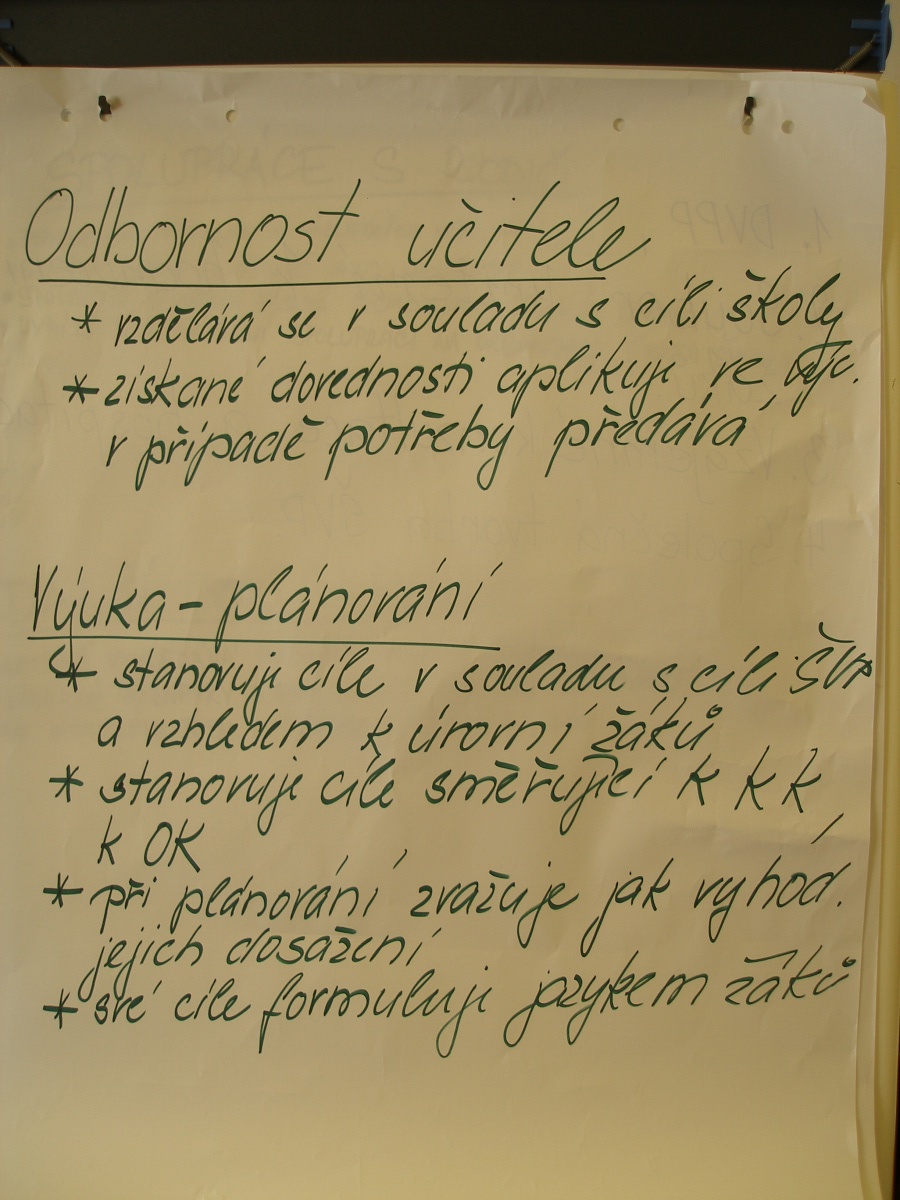 Odbornost učitele
* vzdělává se v souladu s cíli školy
* získané dovednosti aplikuje ve výuc.
v případě potřeby předává
Výuka - plánování
* stanovuje cíle v souladu s cíli ŠVP
a vzhledem k úrovni žáků
* stanovuje cíle směřující k K K
k OK
* při plánování zvažuje jak vyhod.
jejich dosažení
* své cíle formuluje jazykem žáků